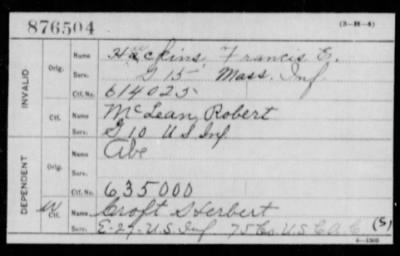 876504 (3-H-4)
INVALID
Orig. Name Francis E.
Serv. G 15 Mass. Inf
Ctf. No. 614025
Ctf. Name McLean, Robert
Serv. G 10 U.S. Inf.
DEPENDENT
Orig. Name Abe
Serv.
Ctf. No. 635000
W Ctf. Name Croft S Herbert
Serv. E-27-U.S. Inf 75 Co. U.S.C.A.C. (S)